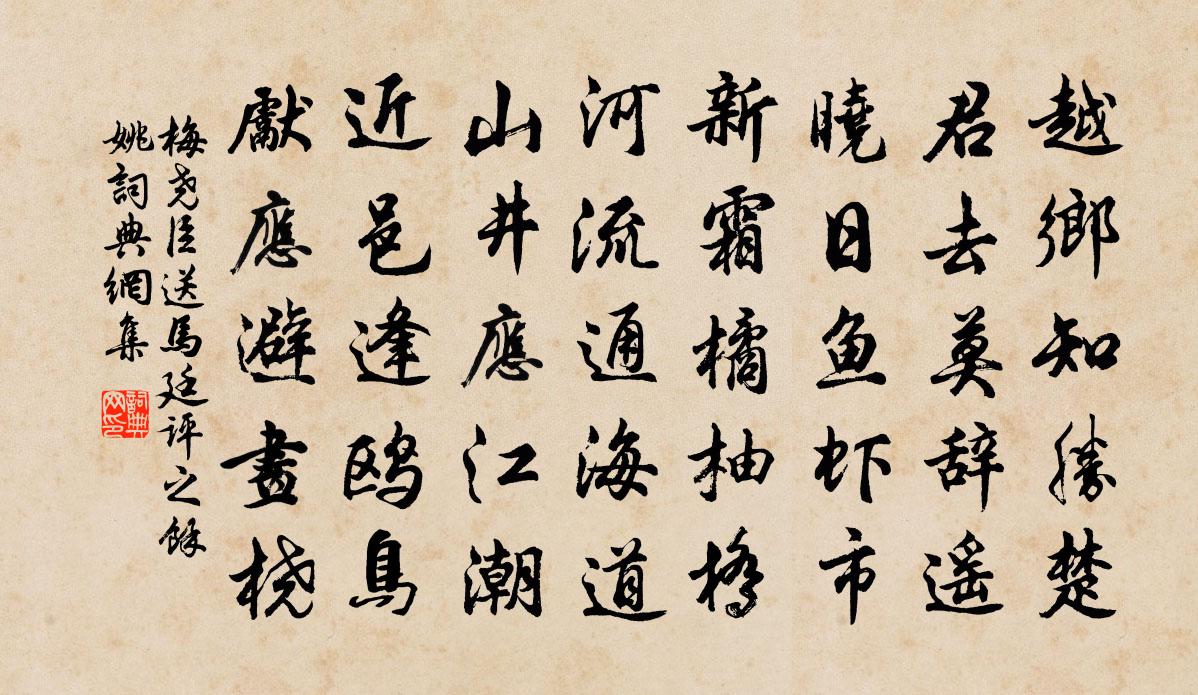 越鄉知勝楚
君去莫辞遥
曉日鱼虾市
新霜橘柚橋
河流通海道
山井應江潮
近邑逢鸥鳥
獻應避畫桡
梅尧臣送馬廷评之餘
姚詞典網集
詞典
网印